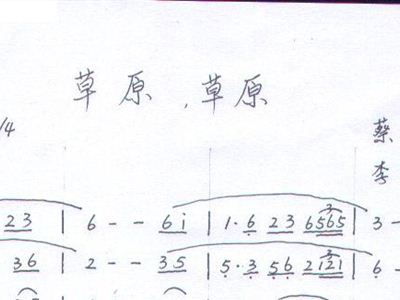 草原,草原
/4
蔡
李
23 | 6 - - 6i | 1·6 23 6565 | 3 -
36 | 2 - - 35 | 5·3 56 2121 | 6 -